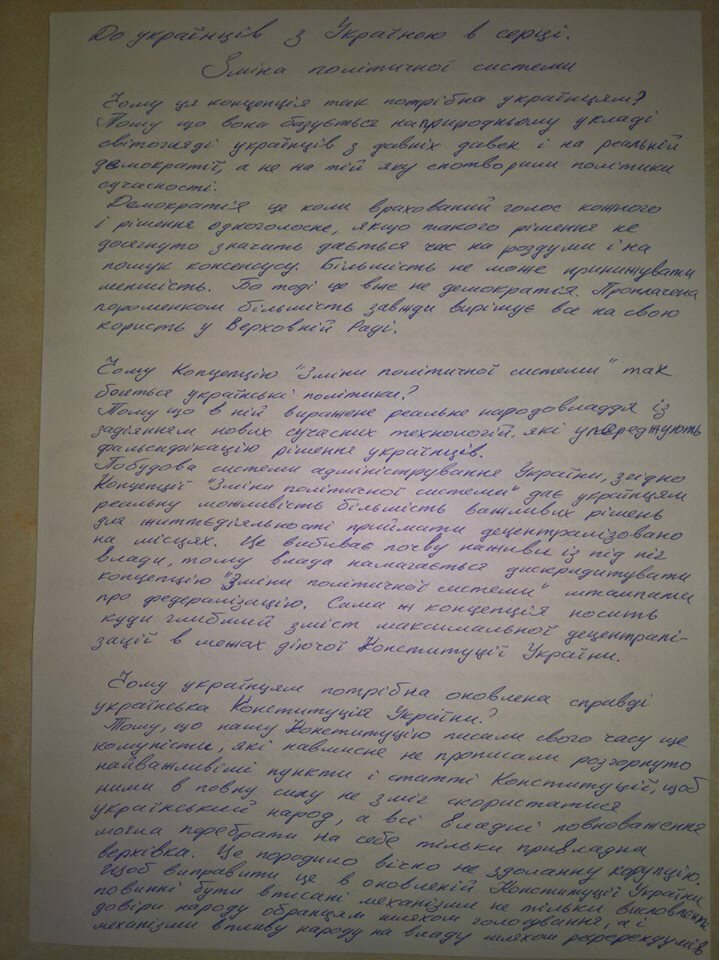 До українців з Україною в серці.
Зміна політичної системи
Чому ця концепція так потрібна українцям?
Тому що вона базується на природньому укладі
світогляді українців з давніх давен і на реальній
демократії, а не на тій яку спотворили політики
сучасності.
Демократія це коли врахований голос кожного
і рішення одноголосне, якщо такого рішення не
досягнуто значить дається час на роздуми і на
пошук консенсусу. Більшість не може принижувати
меншість. Бо тоді це вже не демократія. Проплачена
пороменком більшість завжди вирішує все на свою
користь у Верховній Раді.
Чому Концепцію "Зміни політичної системи" так
бояться українські політики?
Тому що в ній виражене реальне народовладдя із
задіянням нових сучасних технологій, які упереджують
фальсифікацію рішення українців.
Побудова системи адміністрування України, згідно
Концепції "Зміни політичної системи" дає українцям
реальну можливість більшість важливих рішень
для життєдіяльності приймати децентралізовано
на місцях. Це вибиває почву наживи із під ніг
влади, тому влада намагається дискредитувати
концепцію "Зміни політичної системи" штампами
про федералізацію. Сама ж концепція носить
куди глибший зміст максимальної децентралі-
зації в межах діючої Конституції України.
Чому українцям потрібна оновлена справді
українська Конституція України?
Тому, що нашу Конституцію писали свого часу ще
комуністи, які навмисне не прописали розгорнуто
найважливіші пункти і статті Конституції, щоб
ними в повну силу не зміг скористатися
український народ, а всі владні повноваження
могла перебрати на себе тільки привладна
верхівка. Це породило вічно не здоланну корупцію.
Щоб виправити це в оновленій Конституції України
повинні бути вписані механізми не тільки висловлення
довіри народу обранцям шляхом голосування, а і
механізми впливу народу на владу шляхом референдумів